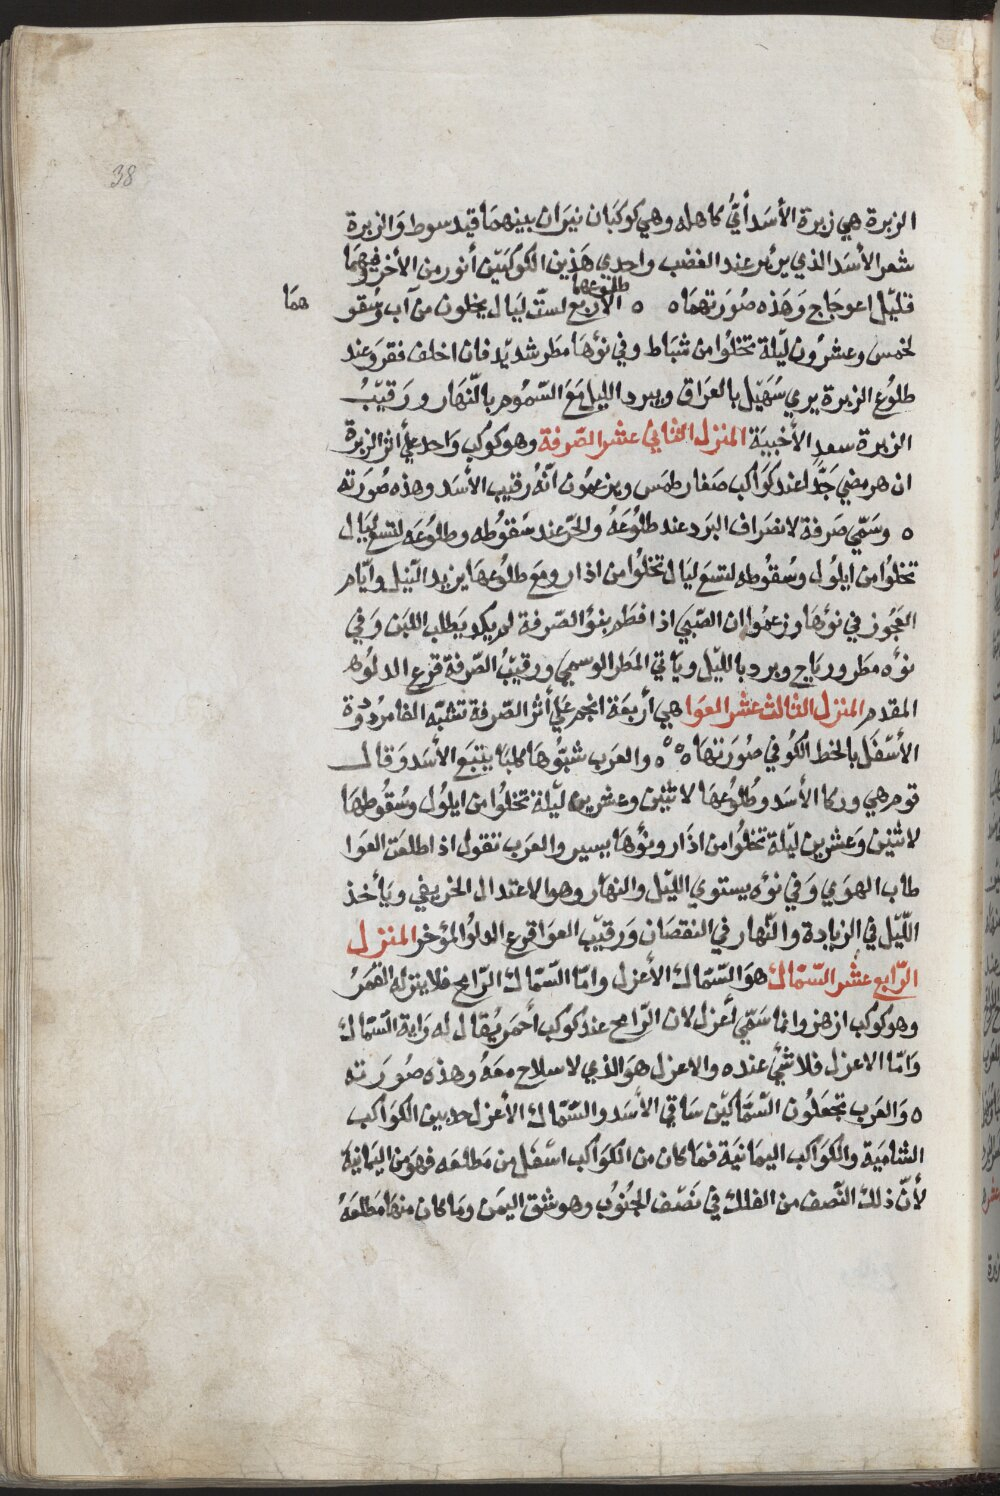 38
الزبرة هي زبرة الأسَد أيُ كاهله وهي كوكبان نيرَان بينهمَا قيد سوط وَالزبرة
شعر الأسَد الذي يزئر عند الغضب واحدي هَذين الكوكبَيّن أنور من الأخر وفيهمَا
قليّل اعوجَاج وَهَذه صُورَتهمَا ٥ ٥ طلوعهما الأربع لستّ ليَال يخلون من آب وسُقو
همَا
لخمس وعشرُون ليّلة تخلوُا من شبَاط وفي نوُهَا مطَر شديّد فان اخلف فقر وَعند
طلوُع الزبرة يري سُهَيّل بالعرَاق ويبرد الليل مَعَ السّموُم بالنّهَار ورَقيّبُ
الزبرة سعد الأخبيَة المنزل الثاني عشر الصّرفة وهو كوكب وَاحد علي أثر الزبرة
ازهر مضي جَدًّا عند كوَاكب صَغار طمس ويزعموُن أنّهُ رقيب الأسَد وهذه صُورَته
٥ وسَمّي صَرفة لانصَراف البرَد عند طلوُعَهُ والحَرّ عند سَقوُطه وطلوُعَه لتسع ليَال
تخلوُا من ايلوُل وسُقوُطه لتسَع ليَال تخلوُا من اذار ومَع طلوُعهَا يزيد النّيل وايّام
العَجُوز في نوُهَا وزعموُا ان الصّبي اذا فطَم بنوُ الصّرفة لم يكد يَطلب اللبَن وَفي
نوُه مطَر وريَاح وبرد بالليّل ويَأتي المطَر الوسمي ورقيّبُ الصّرفة فرع الدلوُ
المقدم المنزل الثالث عشر العوَا هي أربعَة انجم علَي أثر الصّرفة تشبّه الفا مردودة
الأسّفَل بالخط الكوُفي صُورَتهَا ٥ ٥ ٥ ٥ والعرَب شبّوُهَا كلبَا يتبَع الأسَد وَقال
قوم هي وركا الأسَد وطلوُعهَا لاثنيّن وعشرين ليّلة تخلوُا من ايلوُل وسُقوُطهَا
لاثنيّن وَعشرين ليّلة تخلوُا من اذَار ونؤُهَا يسير والعرَب تقول اذا طلعَت العوَا
طاب الهوَي وَفي نوُه يستوي الليّل والنهَار وهو الاعتدال الخريفي ويَأخذ
اللّيّل في الزيادة والنّهار في النقصَان وَرقيّب العوَا فرع الدلوُ المؤخر المنزل
الرّابع عشر السّمَاك هوَ السّمَاك الأعزل وامّا السّمَاك الرّامح فلا ينزله القمَرُ
وهو كوكب ازهر وانما سَمّي أعزل لان الرّامح عند كوكب أحمَر يُقال له رَاية السّمَاك
وَامّا الاعزل فلا شيُ عنده والاعزل هوَ الذي لا سلاح معَهُ وهذه صُورَته
٥ وَالعرَب تجعَلوُن السّمَاكيّن سَاقي الأسَد والسّمَاك الأعزل حد بين الكوَاكب
الشاميَة والكوَاكب اليمَانيَة فمَا كان من الكوَاكب اسّفَل من مَطلعَه فهوَ من اليَمانية
لأنّ ذلك النّصف من الفلك في نصّف الجُنوُب وهو شق اليمَن ومَا كان منهَا مَطلعَهُ